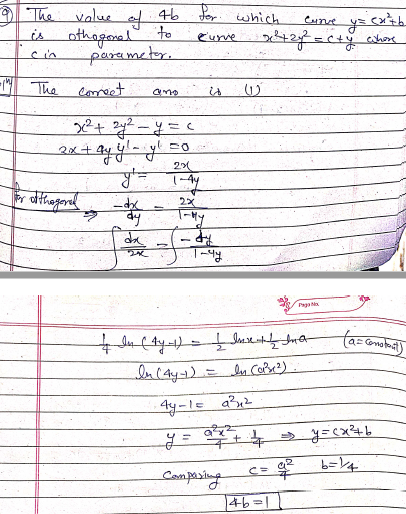 9 The value of 4b for which curve y = cx²+b
is othogonal to curve x²+2y² = c+y where
c in parameter.
The correct ans is (1)
x² + 2y² - y = c
2x + 4y y' - y' = 0
y' = 2x/(1-4y)
for othogonal ⇒ -dx/dy = 2x/(1-4y)
∫ dx/2x = ∫ -dy/(1-4y)
Page No.
1/4 ln (4y-1) = 1/2 lnx + 1/2 lna (a = constant)
ln(4y-1) = ln(a²x²)
4y-1 = a²x²
y = a²x²/4 + 1/4 ⇒ y = cx²+b
Comparing c = a²/4 b = 1/4
4b = 1